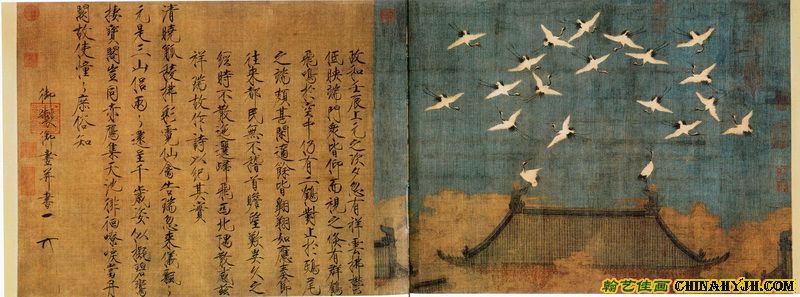 政和壬辰上元之次夕忽有祥雲拂鬱
低映端門眾皆仰而視之倏有群鶴
飛鳴於空中仍有二鶴對止於鴟尾
之端頗甚閑適餘皆翱翔如應奏節
往來都民無不稽首瞻望歎異久之
經時不散迤邐歸飛西北隅散感茲
祥瑞故作詩以紀其實
清曉觚稜拂彩霓仙禽告瑞忽來儀飄〻
元是三山侶兩〻還呈千歲姿似擬碧鸞
棲寶閣豈同赤鴈集天池徘徊嘹唳當丹
闕故使憧〻庶俗知
御製御畫并書
翰艺佳画
CHINAHYJH.COM